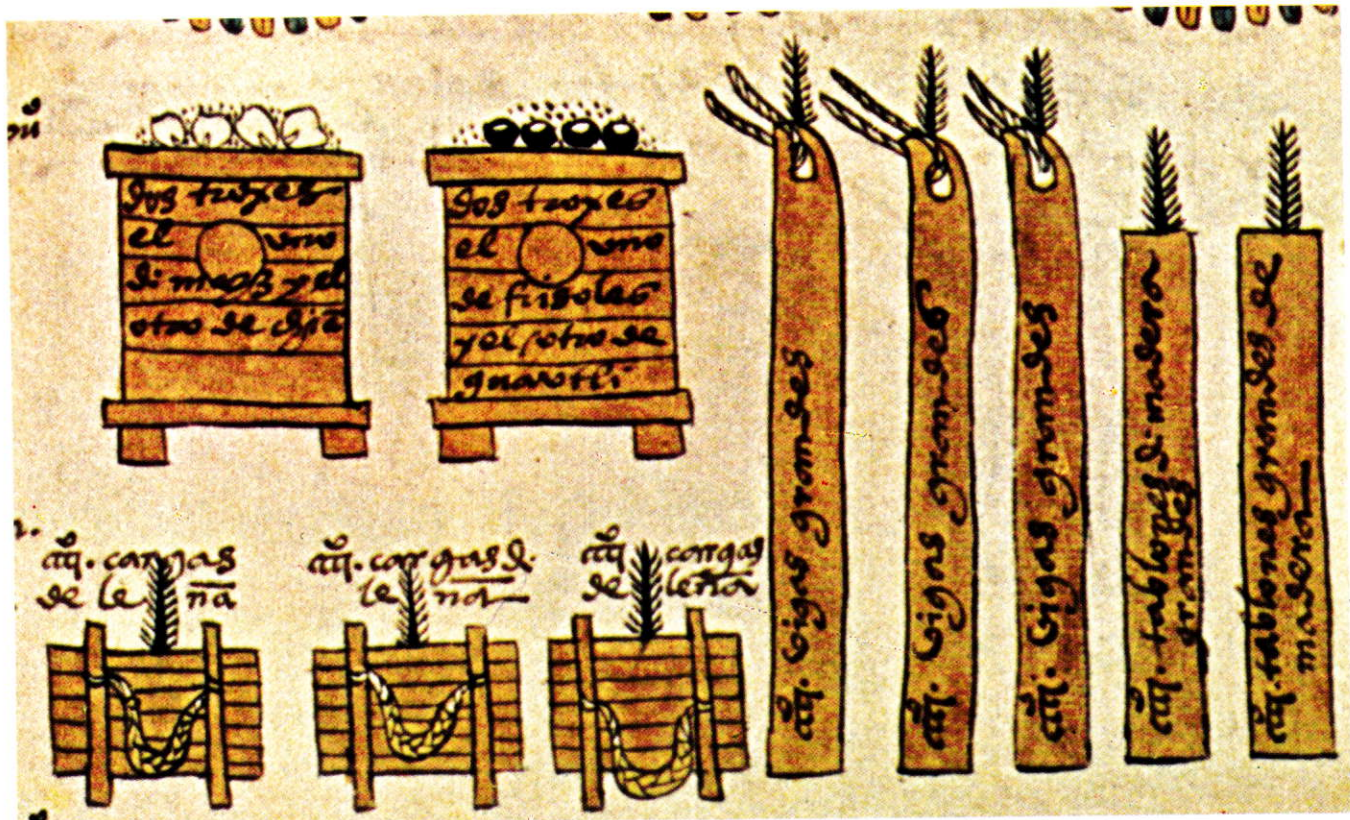 dos troxes
el vno
de maiz y el
otro de chia
dos troxes
el vno
de frisoles
y el otro de
guavtli
cargas
de leña
cargas de
leña
cargas
de leña
vigas grandes
vigas grandes
vigas grandes
tablones de madera
grandes
tablones grandes de
madera